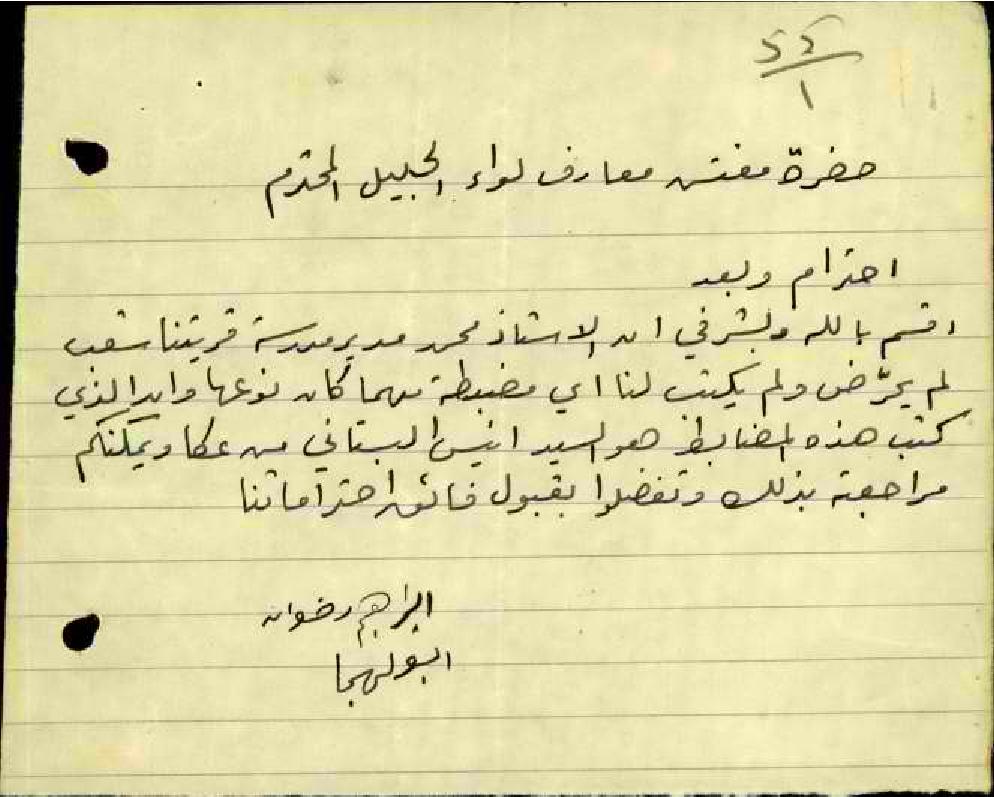 حضرة مفتش معارف لواء الجليل المحترم
احترام وبعد
اقسم بالله وبشرفي ان الاستاذ محمد مدير مدرسة قريتنا شعب
لم يحرّض ولم يكتب لنا اي مضبطة مهما كان نوعها وان الذي
كتب هذه المضابط هو السيد انيس البستاني من عكا ويمكنكم
مراجعته بذلك وتفضلوا بقبول فائق احتراماتنا
ابراهيم رضوان
ابو لهجا